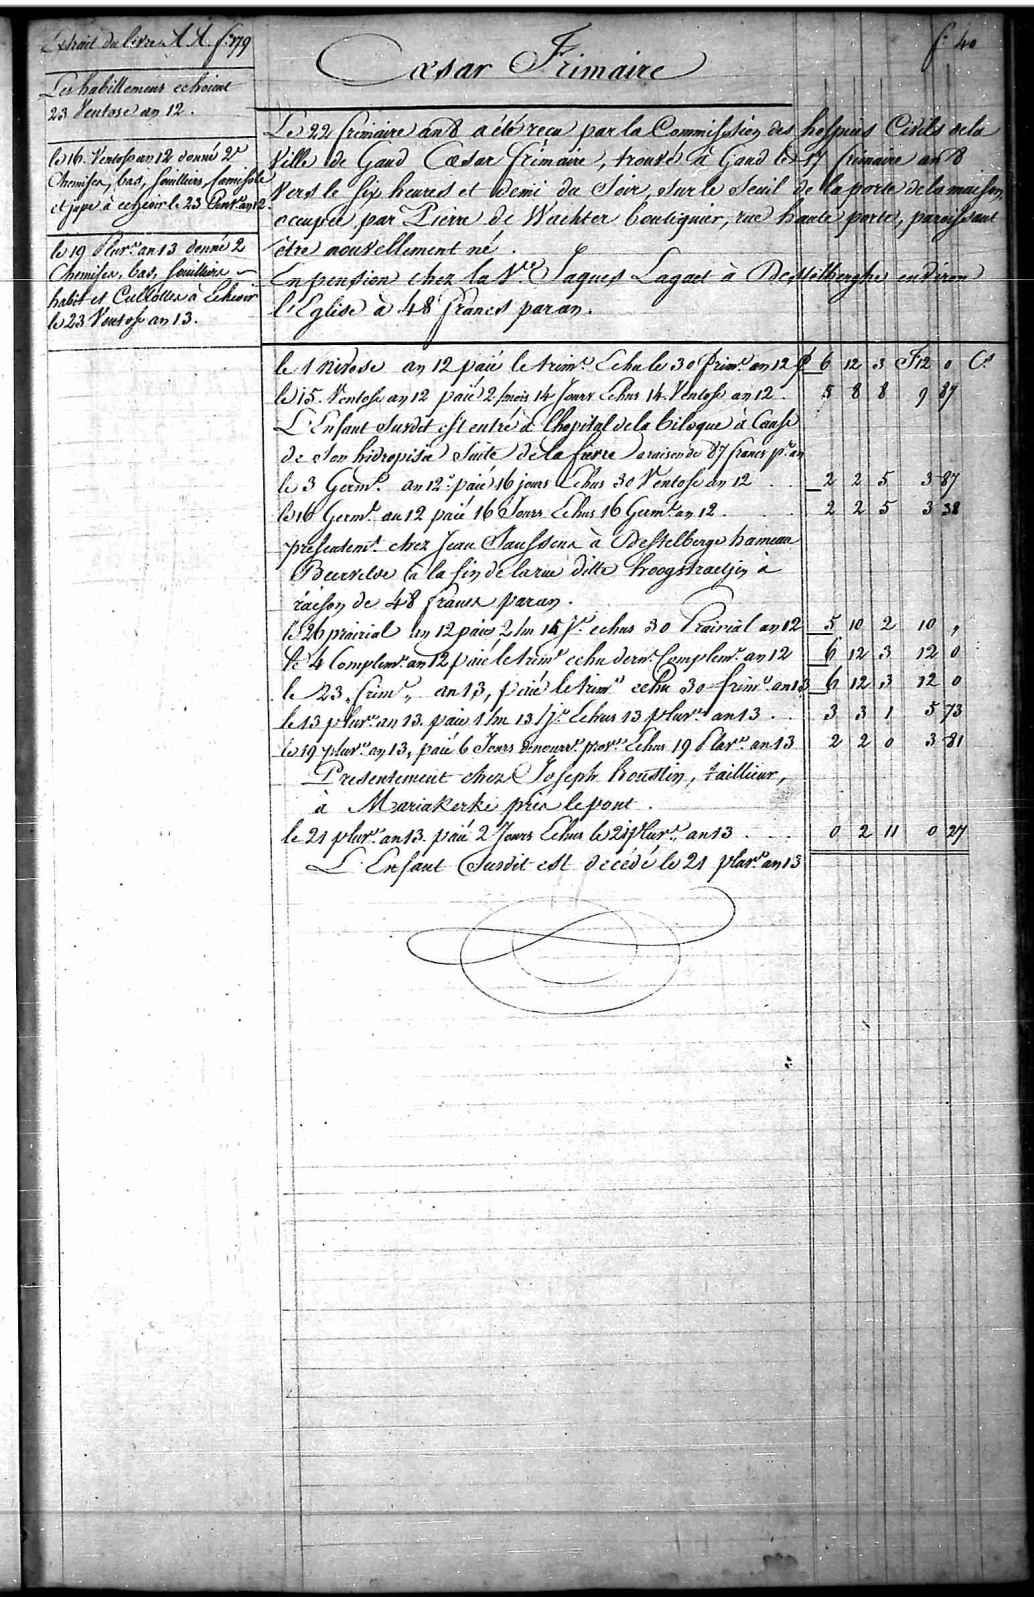 Extrait du livre A A f: 179
f: 40
Cæsar Frimaire
Les habillemens echoient
23 Ventose an 12.
le 16. Ventose an 12 donné 2
Chemises, bas, souilliers, Camisole
et jupe à echeoir le 23 Vent: an 12.
le 19 Pluv.e an 13 donné 2
Chemises, bas, souilliers
habit et Cullottes à Echeoir
le 23 Ventose an 13.
Le 22 frimaire an 8 a été reçu par la Commission des hospices Civils de la
Ville de Gand Cæsar frimaire, trouvé à Gand le 17 frimaire an 8
Vers le six heures et demi du Soir, sur le Seuil de la porte de la maison,
occupée par Pierre de Wachter boutiquier, rue haute porte, paroissant
être nouvellement né.
En pension chez la V.e Jaques Lagaet à Destelberghe environ
l'Eglise à 48 francs par an.
le 1 nivose an 12 paié le trim.e Echu le 30 frim.e an 12 £ 6 12 3 F 12 0 C.s
le 15. Ventose an 12 paié 2/mois 14 Jours Echus 14 Ventose an 12. 5 8 8 9 87
L'Enfant Susdit est entré à l'hopital de la biloque à Cause
de son hidropisie Suite de la fievre a raison de 87 francs p.r an
le 3 Germ.l an 12 paié 16 jours Echus 30 Ventose an 12 . . 2 2 5 3 87
le 16 Germ.l an 12 paié 16 Jours Echus 16 Germ.l an 12 . . 2 2 5 3 38
presentem.t chez Jean Janssens à Destelberge hameau
Beervelde à la fin de la rue ditte hoogstraetjen à
raison de 48 francs par an.
le 26 prairial an 12 paié 2/m 14 J.s echus 30 Prairial an 12 5 10 2 10 ,
le 4 Complem.e an 12 paié le trim.e echu dern.r Complem.e an 12 6 12 3 12 0
le 23 frim.e an 13, paié le trim.e echu 30 frim.e an 13 6 12 3 12 0
le 13 pluv.e an 13. paié 1/m 13/j.s Echus 13 pluv.e an 13 . . 3 3 1 5 73
le 19 pluv.e an 13, paié 6 Jours Echus 19 Pluv.e an 13 2 2 0 3 81
Presentement chez Joseph houstin, taillieur,
à Mariakerke près le pont.
le 21 pluv.e an 13 paié 2 Jours Echus le 21 pluv.e an 13 . . . 0 2 11 0 27
L'Enfant Susdit est decédé le 21 pluv.e an 13